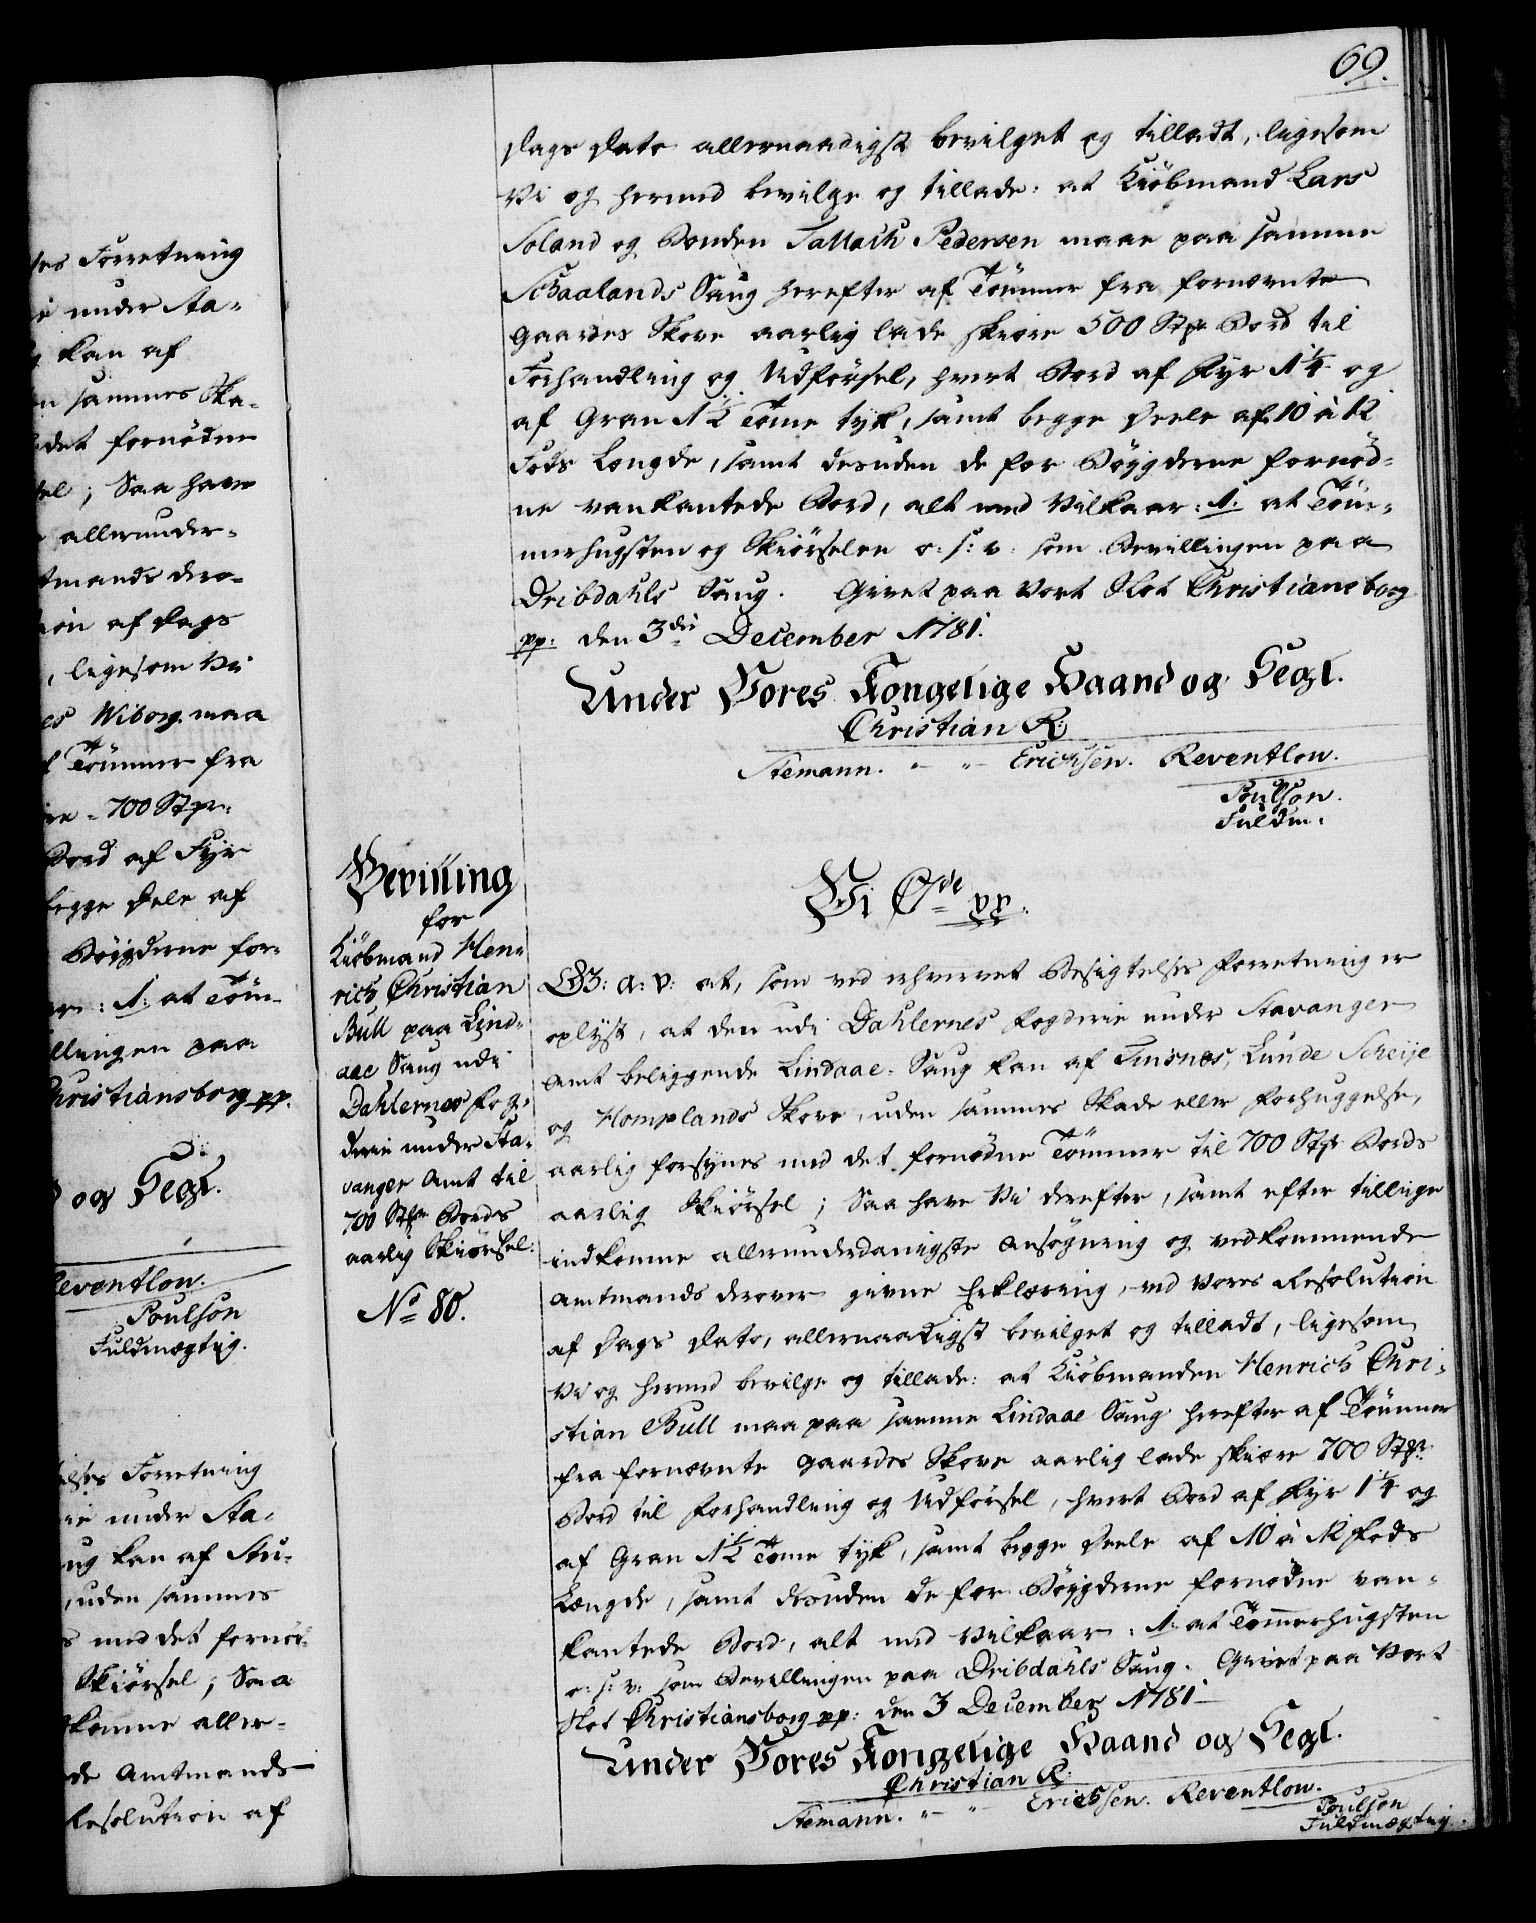 69.
Dags Dato allernaadigst bevilget og tilladt, ligesom
Vi og hermed bevilge og tillade: at Kiöbmand Lars
Soland og Bonden Tallach Pedersen maae paa samme
Schaalands Saug herefter af Tömmer fra fornævnte
Gaardes Skove aarlig lade skiære 500 Stpr Bord til
Forhandling og Udförsel, hvert Bord af Fyr 1¼ og
af Gran 1½ Tome tyk, samt begge Deele af 10 à 12
Fods Længde, samt desuden de for Böygderne fornöd-
ne vankantede Bord, alt med Vilkaar: 1. at Töm-
merhugsten og Skiörselen o: s: v: som Bevillingen paa
Dribdahls Saug. Givet paa Vort Slot Christiansborg
pp: den 3die December 1781.
Under Vores Kongelige Haand og Segl.
Christian R:
Stemann. - - Erichsen. Reventlow.
Poulson.
Fuldm:
Bevilling
for
Kiöbmand Hen-
rich Christian
Bull paa Lind-
aae Saug udi
Dahlernes Fog-
derie under Sta-
vanger Amt til
700 Stpr Bords
aarlig Skiörsel.
No 80.
Vi C 7de pp.
G: a: v: at, som ved erhvervet Besigtelses Forretning er
oplyst, at den udi Dahlernes Fogderie under Stavanger
Amt beliggende Lindaae Saug kan af Tinsnes, Lunde Scheije
og Homplands Skove, uden sammes Skade eller Forhuggelse,
aarlig forsynes med det fornödne Tömmer til 700 Stpr Bords
aarlig Skiörsel; Saa have Vi derefter, samt efter tillige
indkomne allerunderdanigste Ansögning og vedkommende
Amtmands derover givne Erklæring, ved Vores Resolution
af Dags Dato, allernaadigst bevilget og tilladt, ligesom
Vi og hermed bevilge og tillade: at Kiöbmanden Henrich Chri-
stian Bull maa paa samme Lindaae Saug herefter af Tömmer
fra fornævnte Gaardes Skove aarlig lade skiære 700 Stpr
Bord til Forhandling og Udförsel, hvert Bord af Fyr 1¼ og
af Gran 1½ Tome tyk, samt begge Deele af 10 à 12 Fods
Længde, samt desuden de for Böygderne fornödne van-
kantede Bord, alt med Vilkaar: 1. at Tömmerhugsten
o: s: v: som Bevillingen paa Dribdahls Saug. Givet paa Vort
Slot Christiansborg pp: den 3 December 1781.
Under Vores Kongelige Haand og Segl.
Christian R:
Stemann. - - Erichsen. Reventlow.
Poulson
Fuldmægtig.